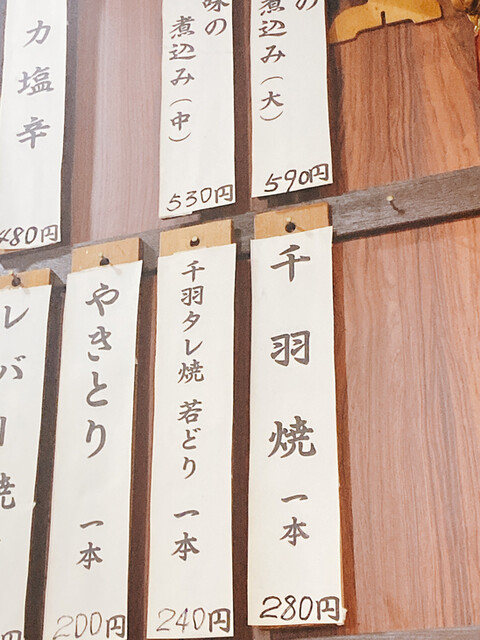 の
煮込み（大）
590円
味の
煮込み（中）
530円
カ塩辛
480円
千羽焼 一本
280円
千羽タレ焼 若どり 一本
240円
やきとり 一本
200円
レバ
焼
円